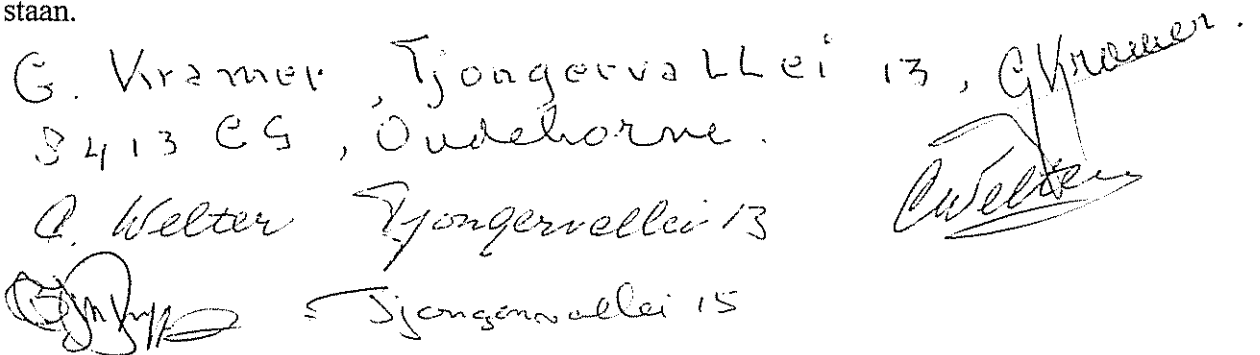 staan.
G. Kramer, Tjongervallei 13, GKramer.
8413 CG, Oudehorne.
C. Welter Tjongervallei 13 CWelter
Tjongervallei 15